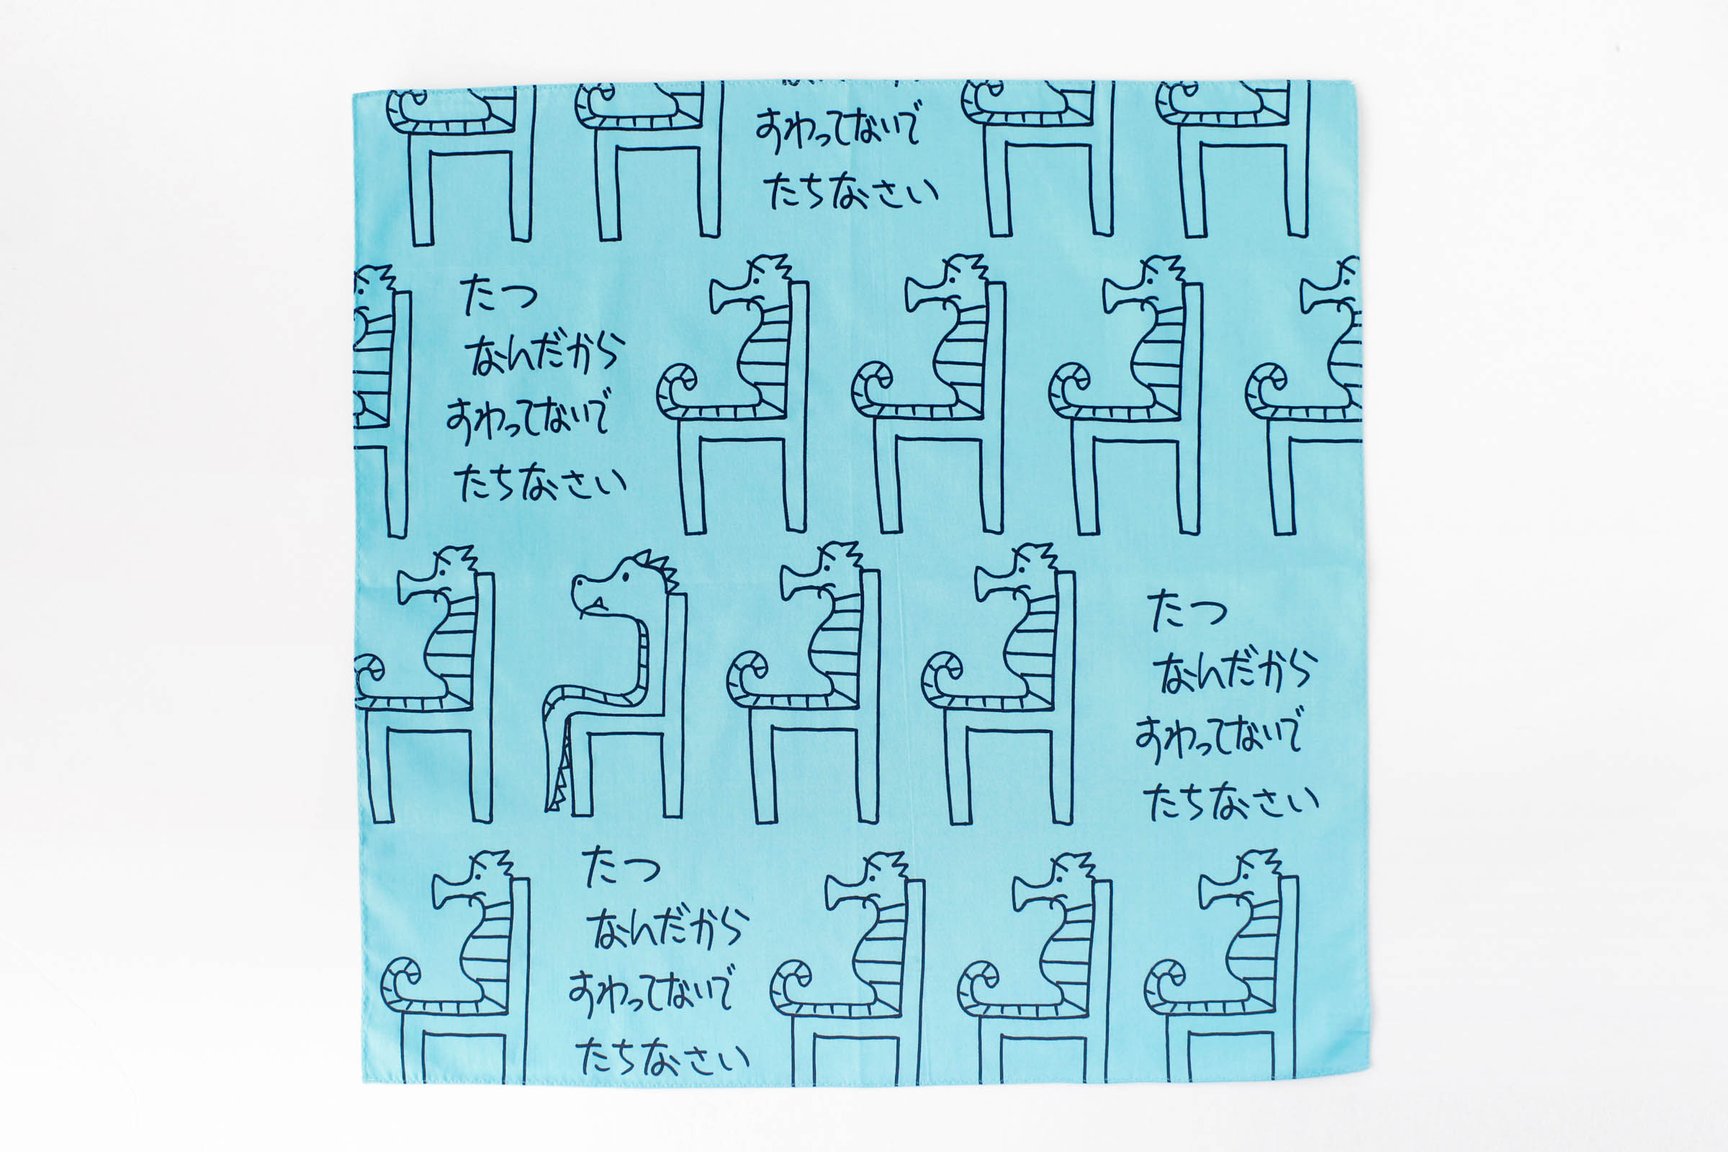 すわってないで
たちなさい
たつ
なんだから
すわってないで
たちなさい
たつ
なんだから
すわってないで
たちなさい
たつ
なんだから
すわってないで
たちなさい